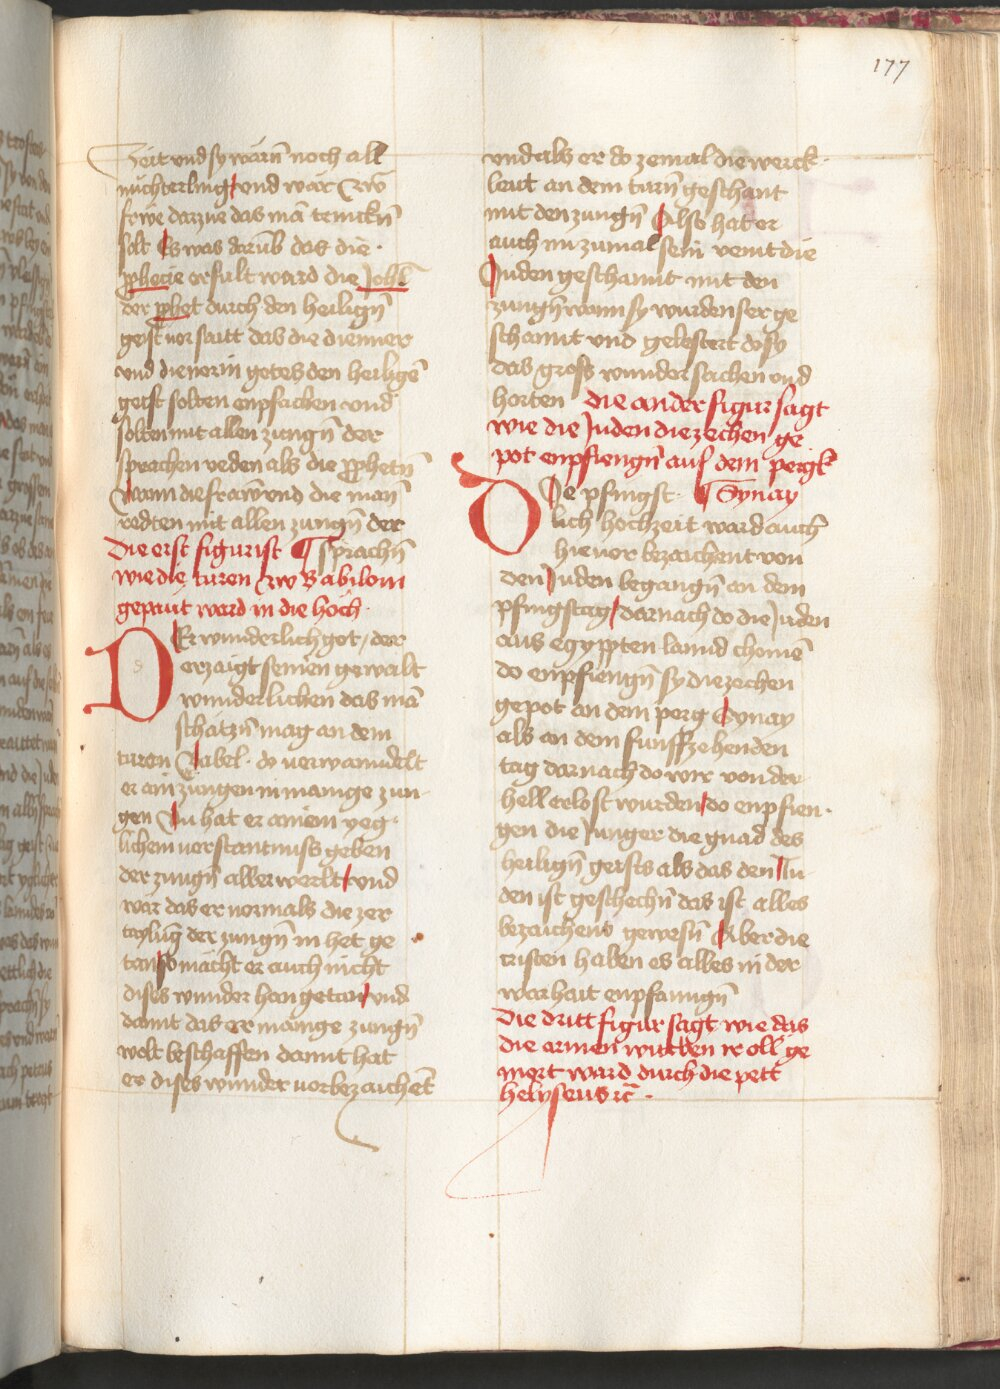 177
Zeit vnd sy warn̄ noch all
nüchterling vnd war zw̄
frwe darzue das mā trincken̄
solt Es was darūb das die
ꝓphecie erfült ward die Johēl
der ꝓphet durch den heilign̄
geist vor sait das die dienner
vnd dienerin gotes den heiligē
geist solten enpfachen vnd
solten mit allen zungn̄ der
sprachen reden als die ꝓphetn̄
Wann die frawn̄ vnd die man̄
redten mit allen zungn̄ der
die erst figur ist ¶ sprachn̄
wie die turen zw Babiloni
gepaut ward in die hoch
DEr wunderlich got / der
erzaigt seinen gewalt
wunderlichen das mā
schätzn̄ mag an dem
turen Babel · do verwanndelt
er ain zungen in mainge zun-
gen Nu hat er ainem yeg-
lichem verstantnuss geben
der zungn̄ aller werlt vnd
war das er vormals die zer
taylūg der zungn̄ in het ge
tan so mācht er auch nicht
dises wunder han getan vnd
damit das er mainge zungn̄
wolt beschaffen damit hat
er dises wunder vorbezaichēt
vnd als er do zemal die werck-
leut an dem turn̄ geschant
mit den zungn̄ Also hat er
auch nu zumal sein veint die
Juden geschannt mit den
zungn̄ wann sy wurden ser ge
schannt vnd gelestert do sy
das gross wunder sachen vnd
horten die ander figur sagt
wie die Juden die zechen ge
pot enpfiengn̄ auf dem perg
¶ Synay
DIe pfingst-
lich hochzeit ward auch
hie vor bezaichent von
den Juden begangn̄ an dem
pfingstag / darnach do die Juden
aus egyppten lannd chomē
do enpfiengn̄ sy die zechen
gepot an dem perg Synay
als an dem funffzehenden
tag darnach do wir von der
hell erlost wurden / do enpfien-
gen die Junger die gnad des
heilign̄ geists als das den Ju-
den ist geschechn̄ das ist alles
bezaichens gewesn̄ Aber die
cristen haben es alles in der
warhait enpfanngn̄
die dritt figur sagt wie das
die armen wittben ir öll ge
mert ward durch die pett
helyseus ꝛc̄ ·